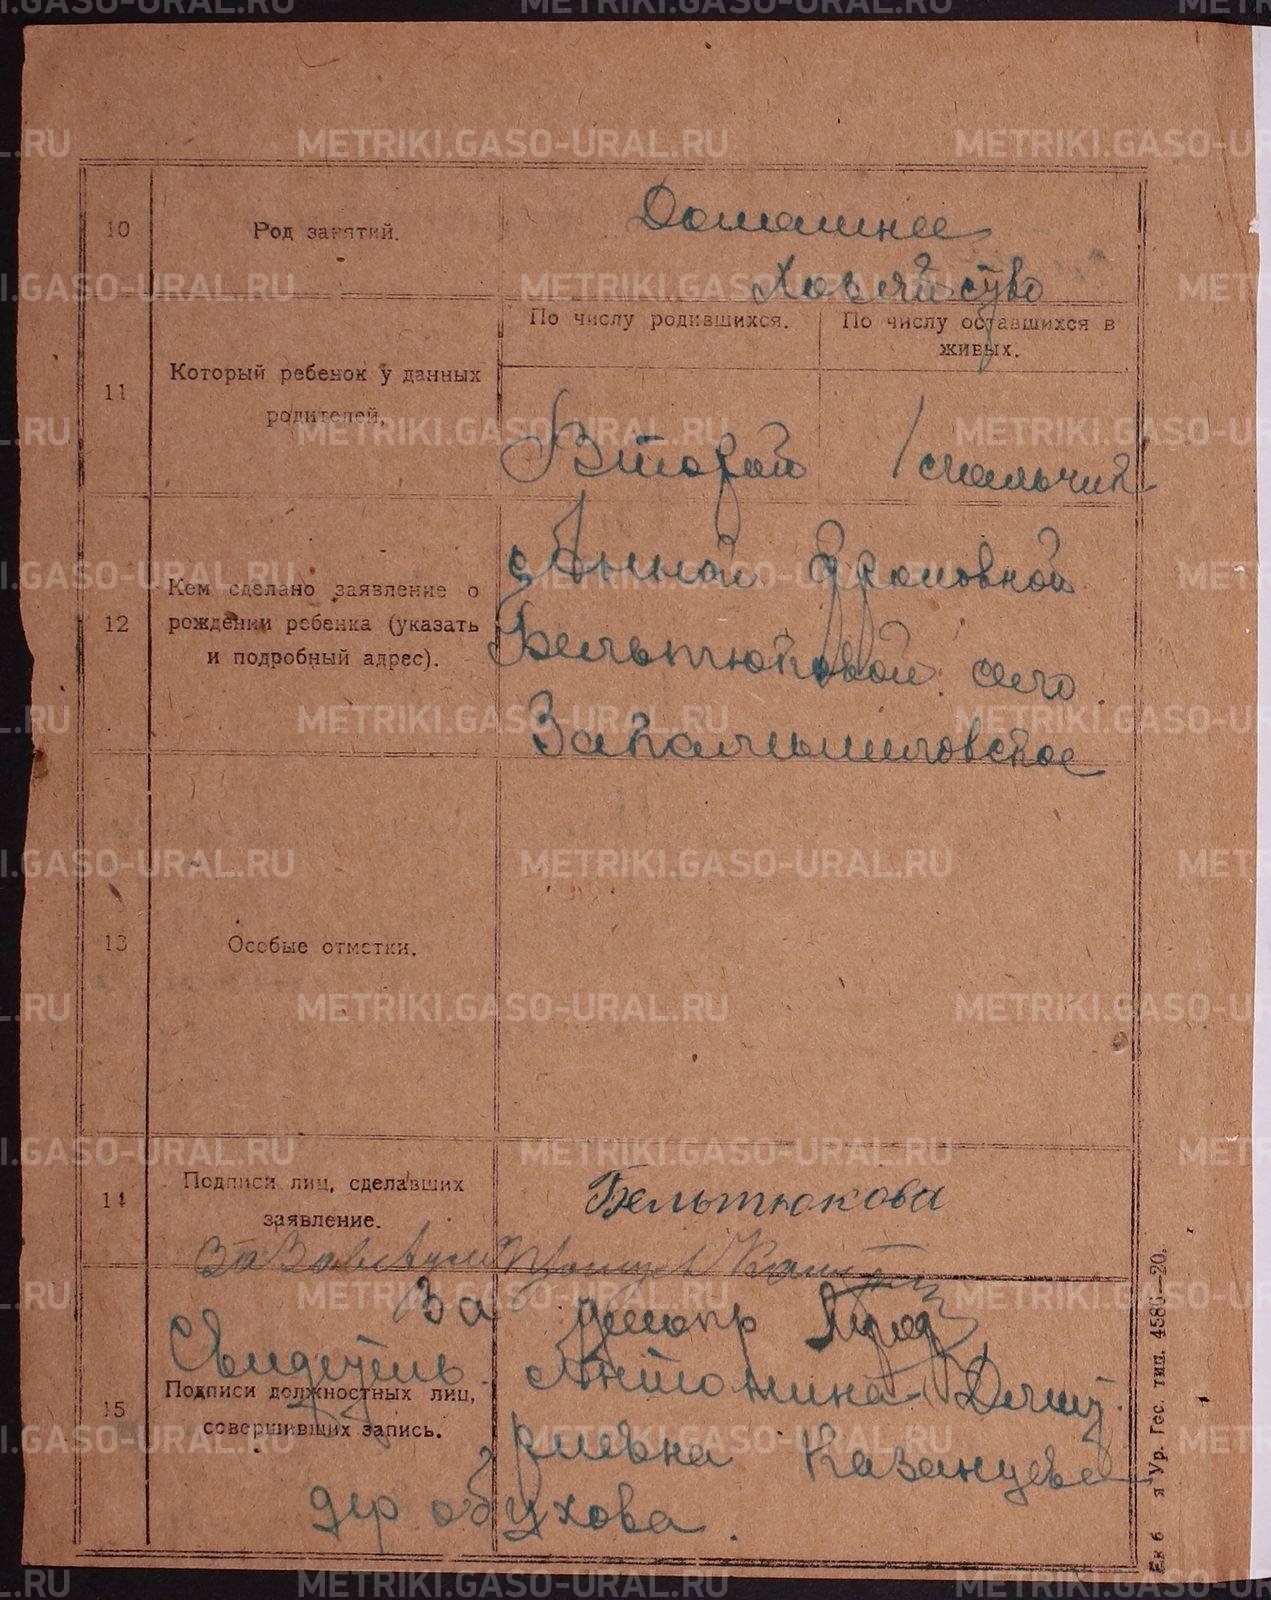 10
Род занятий.
Домашнее
Хозяйство
11
Который ребенок у данных
родителей.
По числу родившихся.
По числу оставшихся в
живых.
Второй
мальчик
12
Кем сделано заявление о
рождении ребенка (указать
и подробный адрес).
Анной
Бельтюковой село
13
Особые отметки.
14
Подписи лиц, сделавших
заявление.
Бельтюкова
За
Свидетель Антонина Дмит
15
Подписи должностных лиц,
совершивших запись.
риевна Казанцева
дер Обухова.
я Ур. Гос. тип. 4586—20.
METRIKI.GASO-URAL.RU